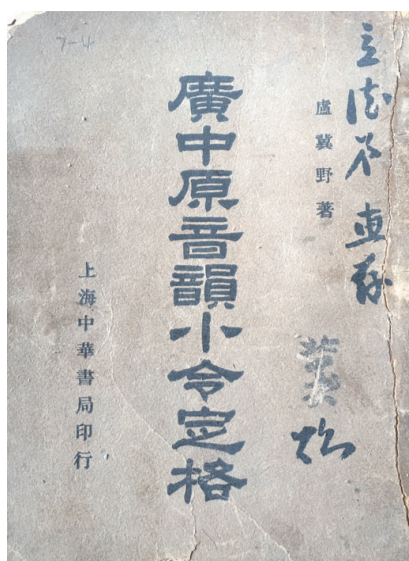 盧冀野著
廣中原音韻小令定格
上海中華書局印行
7-4